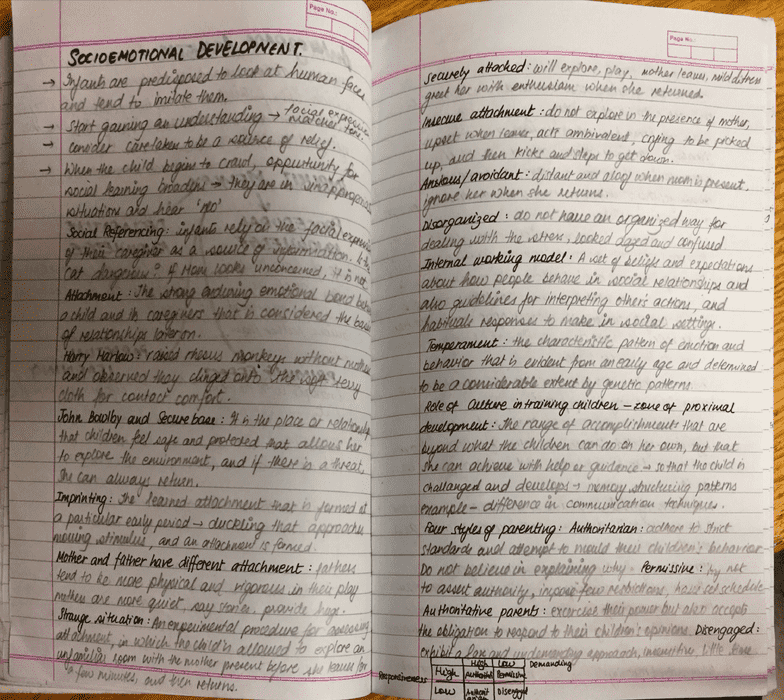 Page No.:
SOCIOEMOTIONAL DEVELOPMENT.
→ Infants are predisposed to look at human faces
and tend to imitate them.
→ Start gaining an understanding → facial expression
matches tone.
→ consider caretakers to be a source of relief.
→ When the child begins to crawl, opportunity for
social learning broadens → they are in inappropriate
situations and hear 'no'
Social Referencing: infants rely on the facial expression
of their caregiver as a source of information. Is the
cat dangerous? if Mom looks unconcerned, it is not.
Attachment: The strong enduring emotional bond between
a child and its caregivers that is considered the basis
of relationships later on.
Harry Harlow: raised rhesus monkeys without mother
and observed they clinged onto the soft terry
cloth for contact comfort.
John Bowlby and Secure base: It is the place or relationship
that children feel safe and protected that allows her
to explore the environment, and if there is a threat,
she can always return.
Imprinting: The learned attachment that is formed at
a particular early period → duckling that approaches
moving stimulus, and an attachment is formed.
Mother and father have different attachment: fathers
tend to be more physical and vigorous in their play
mothers are more quiet, say stories, provide hugs.
Strange situation: An experimental procedure for assessing
attachment, in which the child is allowed to explore an
unfamiliar room with the mother present before she leaves for
a few minutes, and then returns.
Page No.:
Securely attached: will explore, play, mother leaves, mild distress
great her with enthusiasm when she returned.
Insecure attachment: do not explore in the presence of mother,
upset when leaves, acts ambivalent, crying to be picked
up, and then kicks and steps to get down.
Anxious/avoidant: distant and aloof when mom is present,
ignore her when she returns.
Disorganized: do not have an organized way for
dealing with the stress, looked dazed and confused
Internal working model: A set of beliefs and expectations
about how people behave in social relationships and
also guidelines for interpreting other's actions, and
habituals responses to make in social setting.
Temperament: the characteristic pattern of emotion and
behavior that is evident from an early age and determined
to be a considerable extent by genetic patterns.
Role of Culture in training children - zone of proximal
development: The range of accomplishments that are
beyond what the children can do on her own, but that
she can achieve with help or guidance → so that the child is
challanged and develops → memory structuring patterns
example - difference in communication techniques.
Four styles of parenting: Authoritarian: adhere to strict
standards and attempt to mould their children's behavior
Do not believe in explaining why - Permissive: try not
to assert authority, impose few restrictions, have set schedule
Authoritative parents: exercise their power but also accepts
the obligation to respond to their children's opinions. Disengaged:
exhibit a lax and undemanding approach, insensitive, little time
Demanding
High Low
Responsiveness High Authoritat Permissive
Low Authorit arian Disengagd